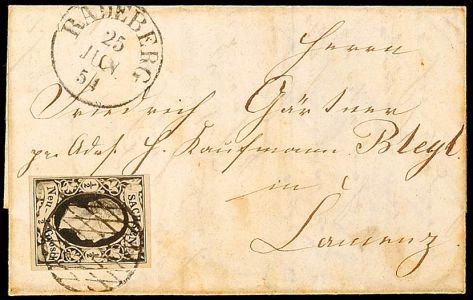 RADEBERG
25
JUN.
54
Herrn
Friedrich Gärtner
pr. Adr. H. Kaufmann Bleyl.
in
Camenz.
SACHSEN
½
Neu